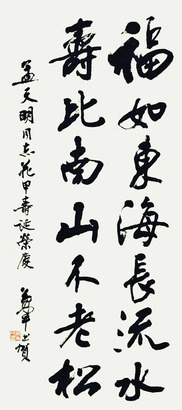 福如東海長流水
壽比南山不老松
孟天明同志花甲壽誕榮慶